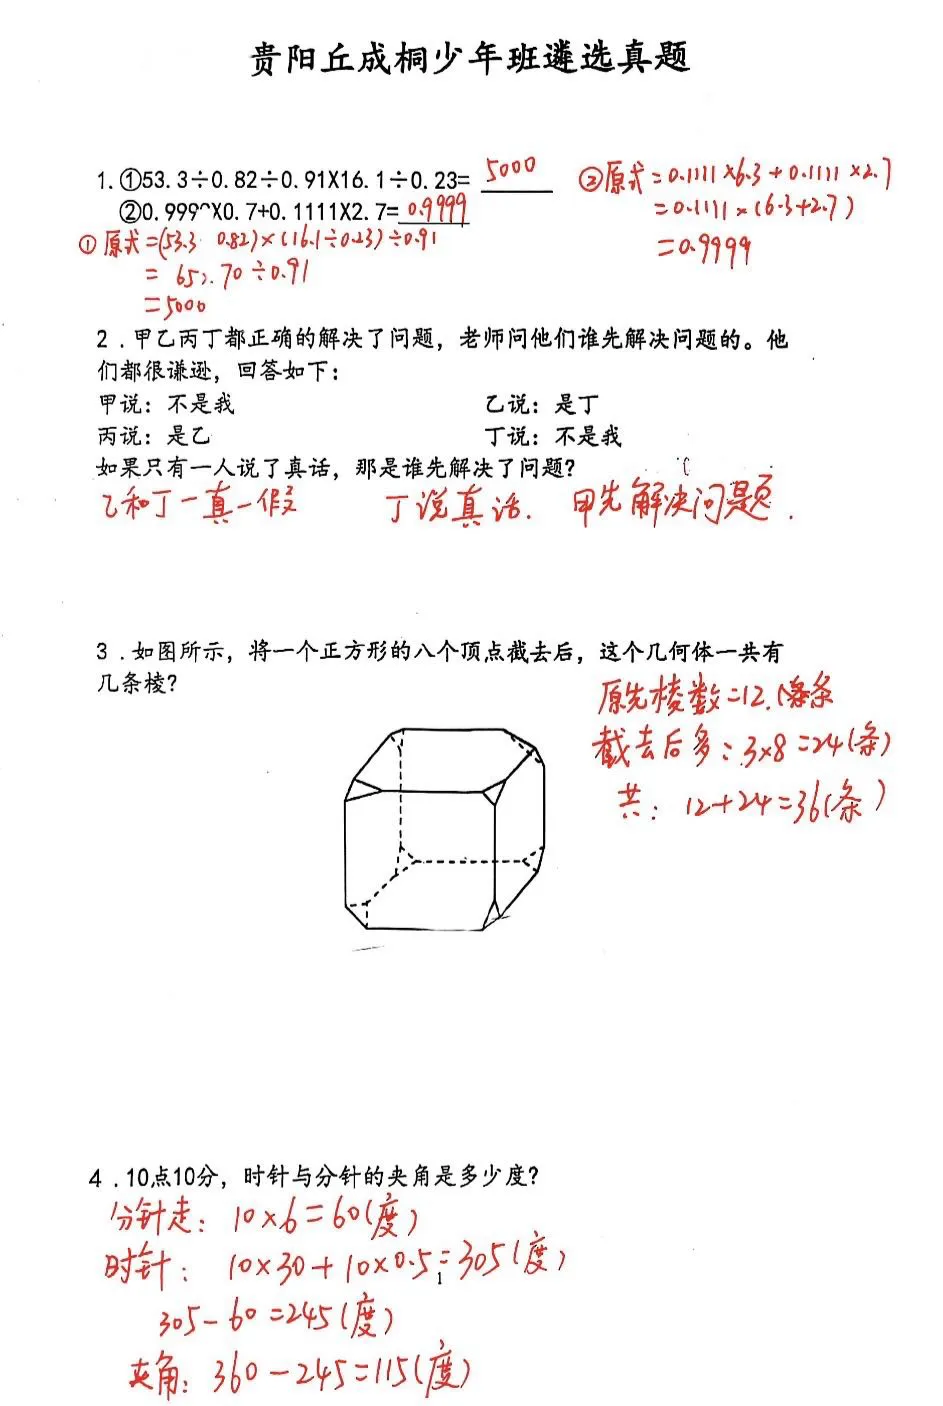 贵阳丘成桐少年班遴选真题
1.①53.3÷0.82÷0.91X16.1÷0.23= 5000
②0.999^X0.7+0.1111X2.7= 0.9999
②原式=0.1111×6.3+0.1111×2.7
=0.1111×(6.3+2.7)
=0.9999
①原式=(53.3 0.82)×(16.1÷0.23)÷0.91
= 70÷0.91
=5000
2.甲乙丙丁都正确的解决了问题，老师问他们谁先解决问题的。他
们都很谦逊，回答如下：
甲说：不是我 乙说：是丁
丙说：是乙 丁说：不是我
如果只有一人说了真话，那是谁先解决了问题?
乙和丁一真一假 丁说真话. 甲先解决问题.
3.如图所示，将一个正方形的八个顶点截去后，这个几何体一共有
几条棱?
原先棱数=12 条
截去后多:3×8=24(条)
共: 12+24=36(条)
4.10点10分，时针与分针的夹角是多少度?
分针走: 10×6=60(度)
时针: 10×30+10×0.5=305(度)
305-60=245(度)
夹角: 360-245=115(度)